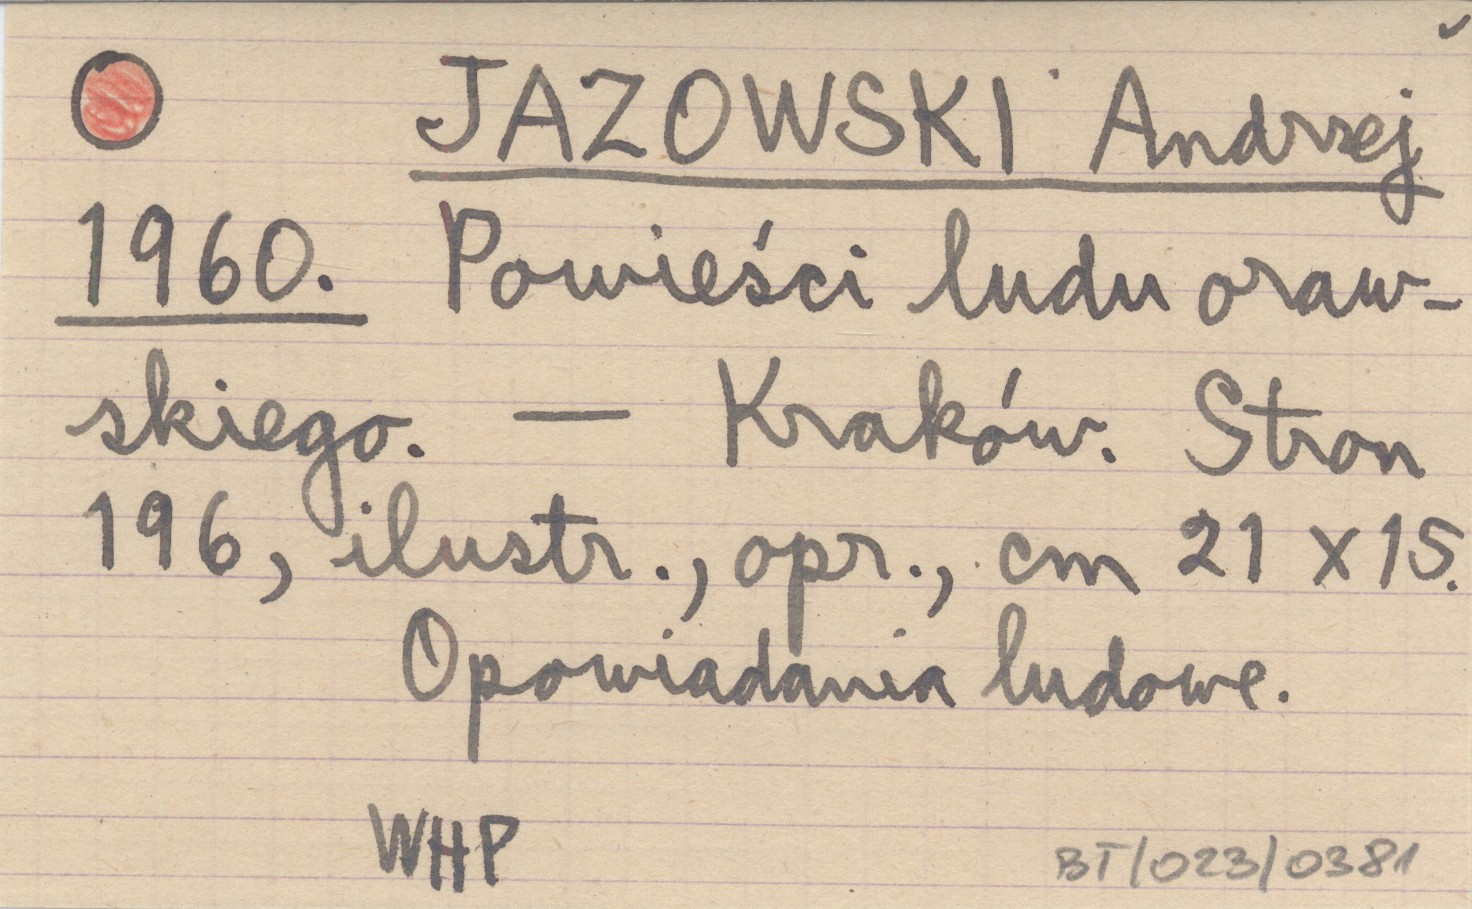 JAZOWSKI Andrzej
1960. Powieści ludu oraw-
skiego. — Kraków. Stron
196, ilustr., opr., cm 21 x 15.
Opowiadania ludowe.
WHP
BT/023/0381